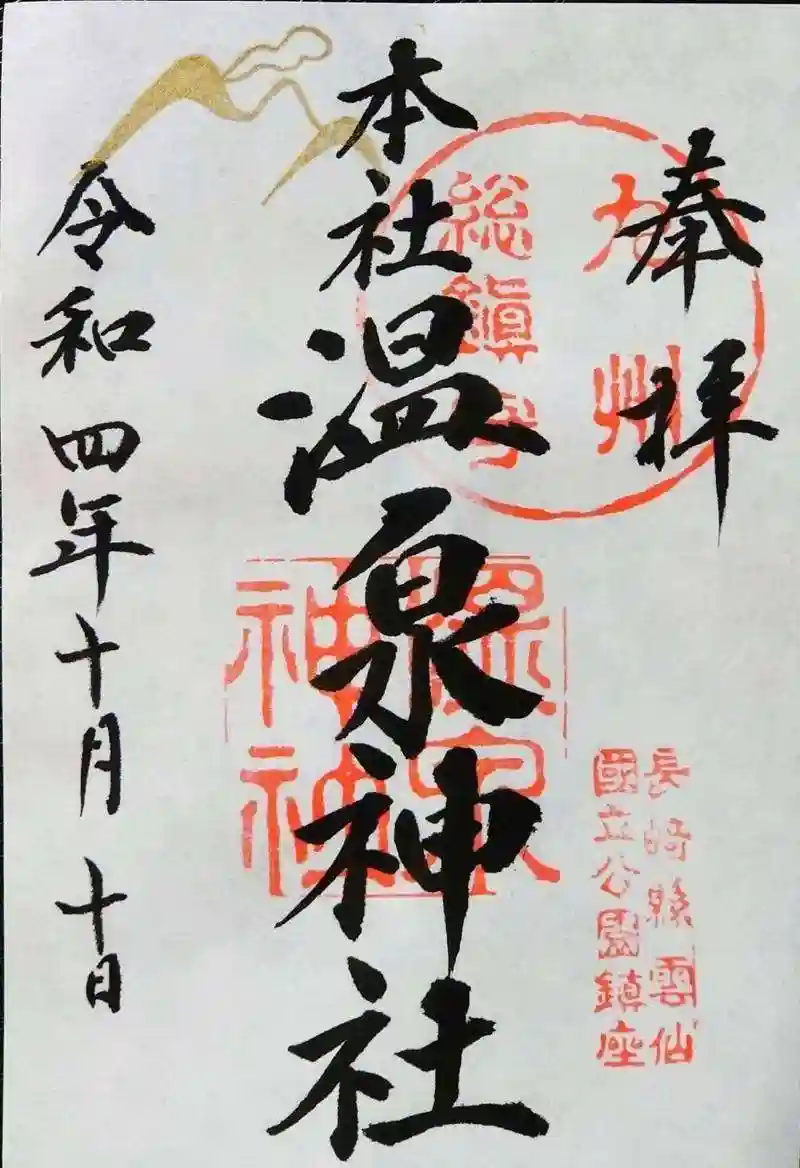 奉拝
九州
総鎮守
本社温泉神社
温泉
神社
長崎縣雲仙
國立公園鎮座
令和四年十月十日